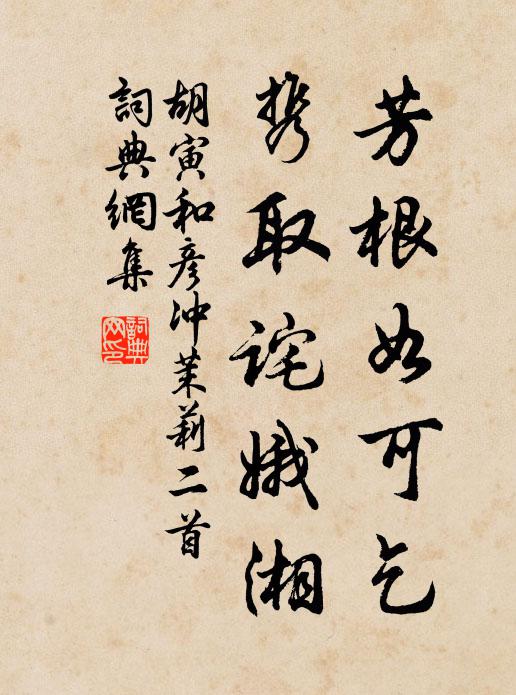 芳根如可乞
携取诧娥湘
胡寅和彦冲茉莉二首
詞典網集
詞典網印